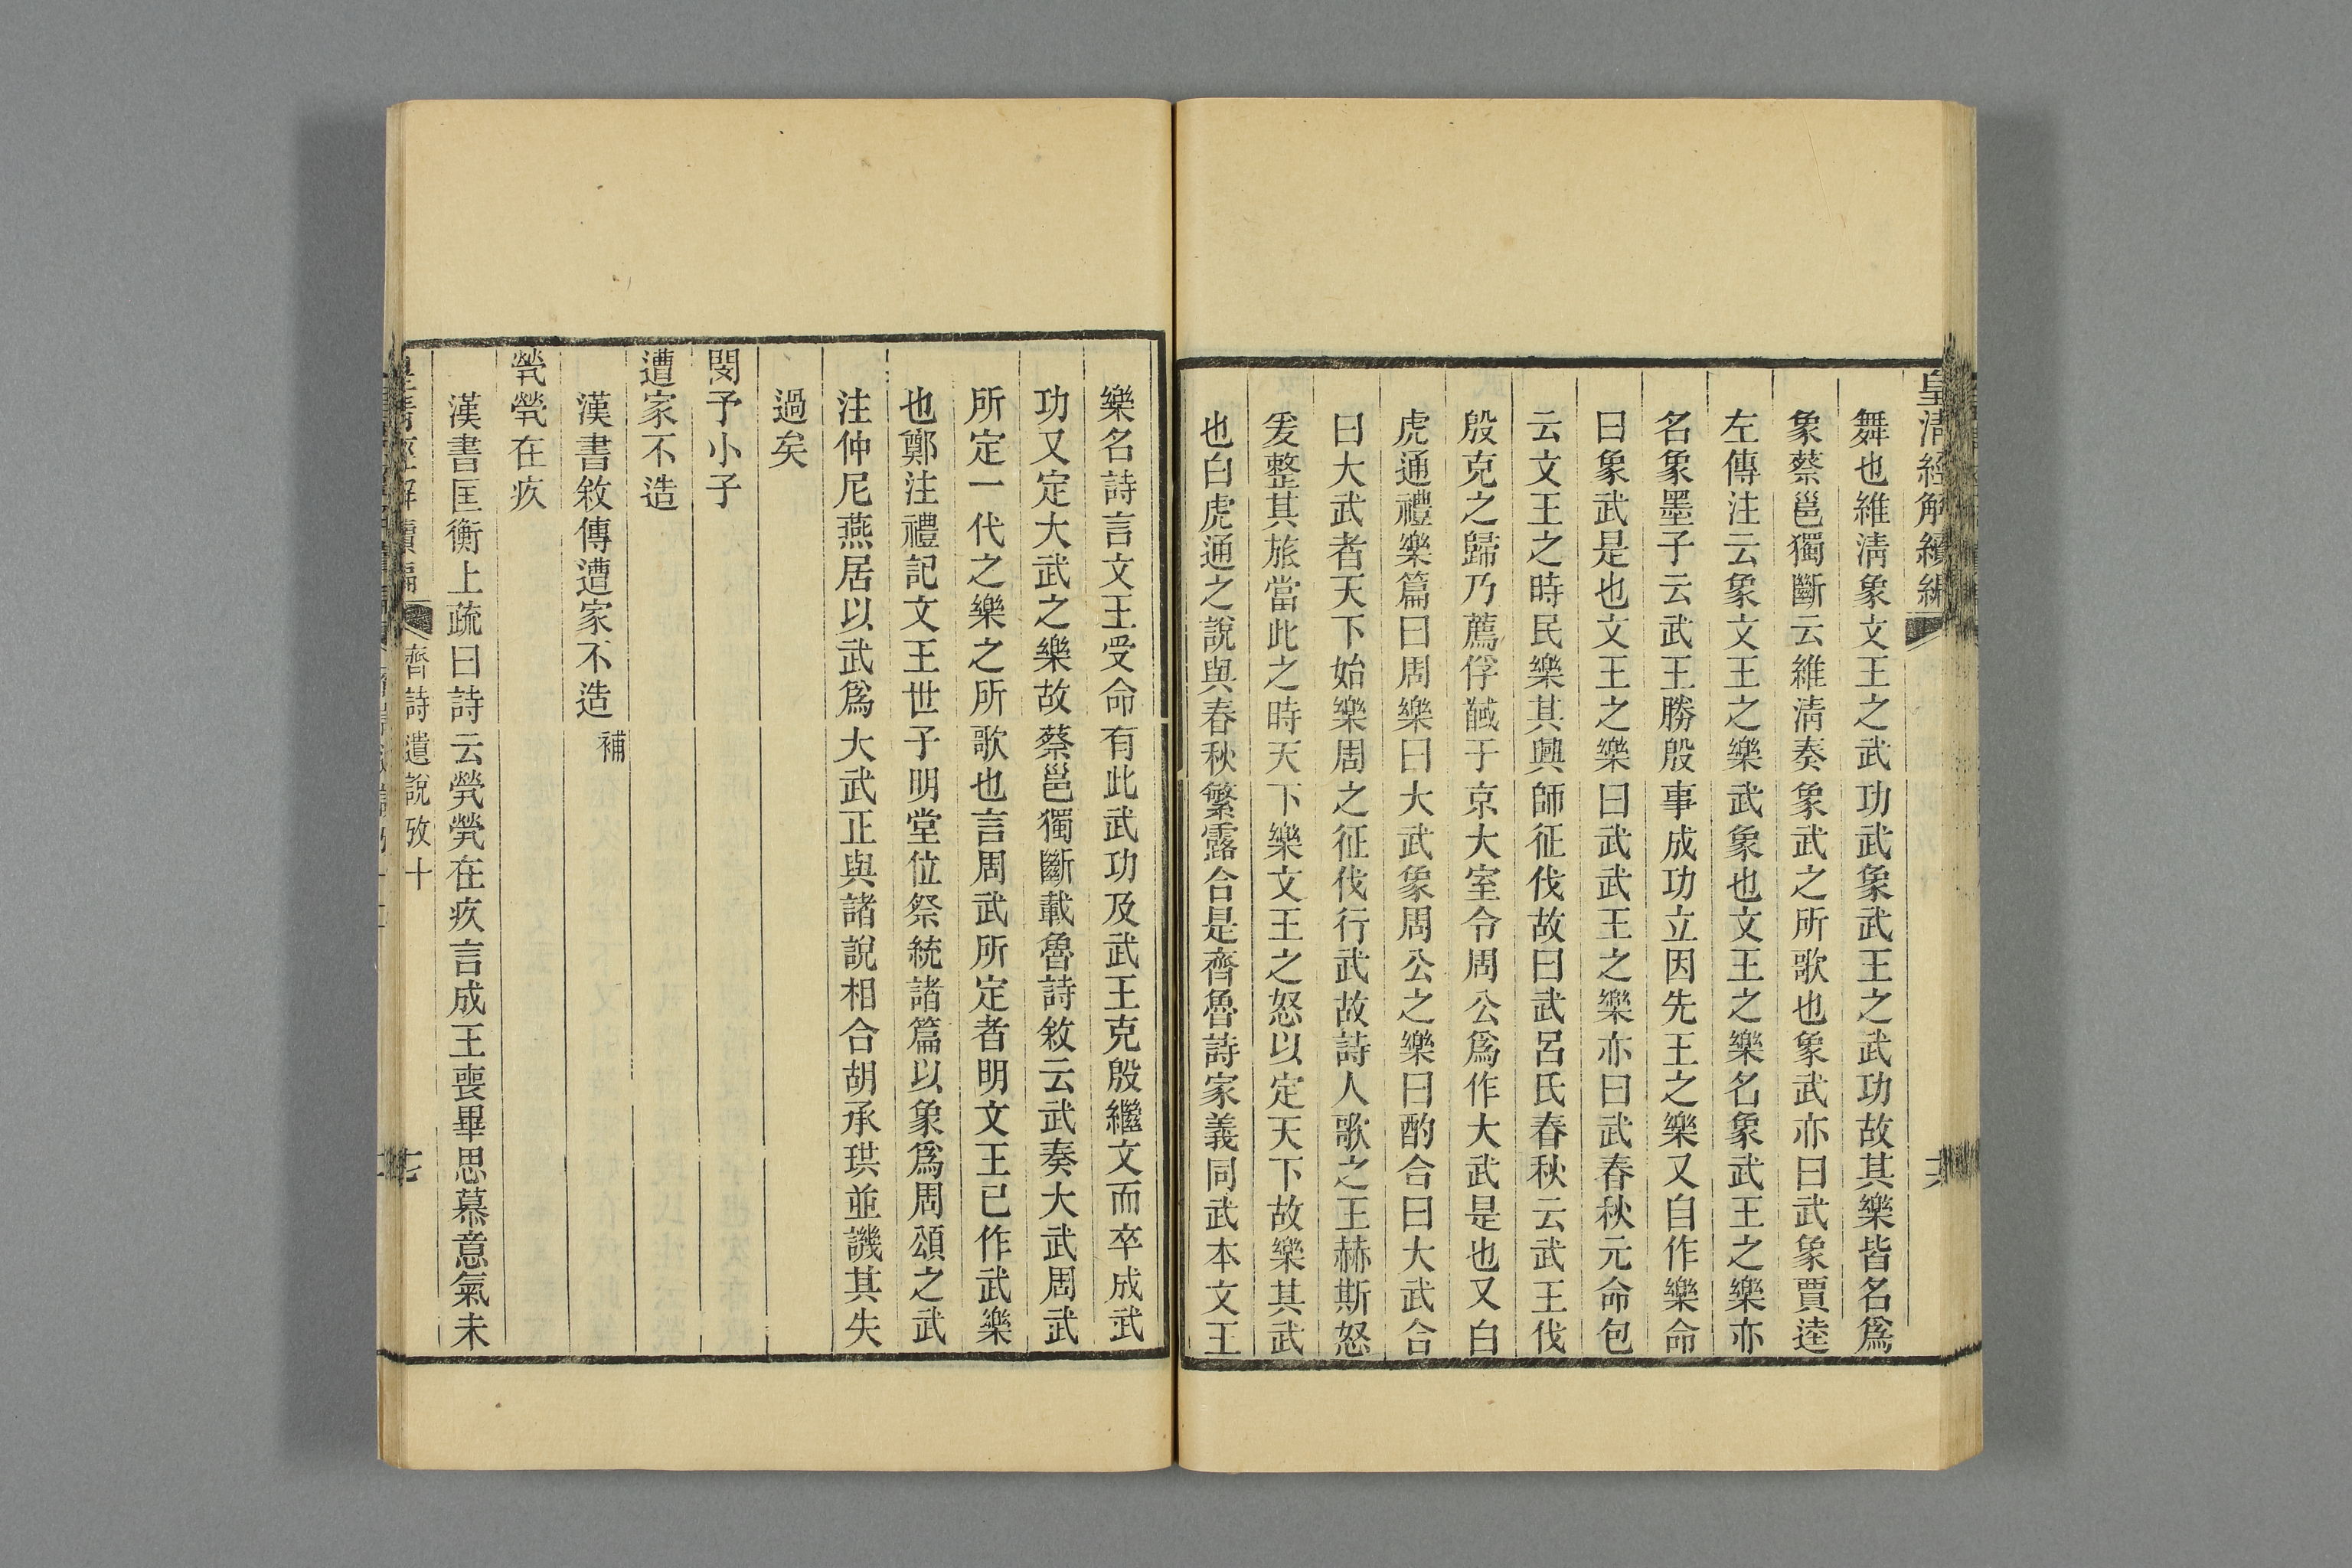 皇清經解續編
舞也維淸象文王之武功武象武王之武功故其樂皆名爲
象蔡邕獨斷云維淸奏象武之所歌也象武亦曰武象賈逵
左傳注云象文王之樂武象也文王之樂名象武王之樂亦
名象墨子云武王勝殷事成功立因先王之樂又自作樂命
曰象武是也文王之樂曰武武王之樂亦曰武春秋元命包
云文王之時民樂其興師征伐故曰武呂氏春秋云武王伐
殷克之歸乃薦俘馘于京大室令周公爲作大武是也又白
虎通禮樂篇曰周樂曰大武象周公之樂曰酌合曰大武合
曰大武者天下始樂周之征伐行武故詩人歌之王赫斯怒
爰整其旅當此之時天下樂文王之怒以定天下故樂其武
也白虎通之說與春秋繁露合是齊魯詩家義同武本文王
樂名詩言文王受命有此武功及武王克殷繼文而卒成武
功又定大武之樂故蔡邕獨斷載魯詩敘云武奏大武周武
所定一代之樂之所歌也言周武所定者明文王已作武樂
也鄭注禮記文王世子明堂位祭統諸篇以象爲周頌之武
注仲尼燕居以武爲大武正與諸說相合胡承珙並譏其失
過矣
閔予小子
遭家不造
漢書敘傳遭家不造補
煢煢在疚
漢書匡衡上疏曰詩云煢煢在疚言成王喪畢思慕意氣未
皇清經解續編 齊詩遺說攷十